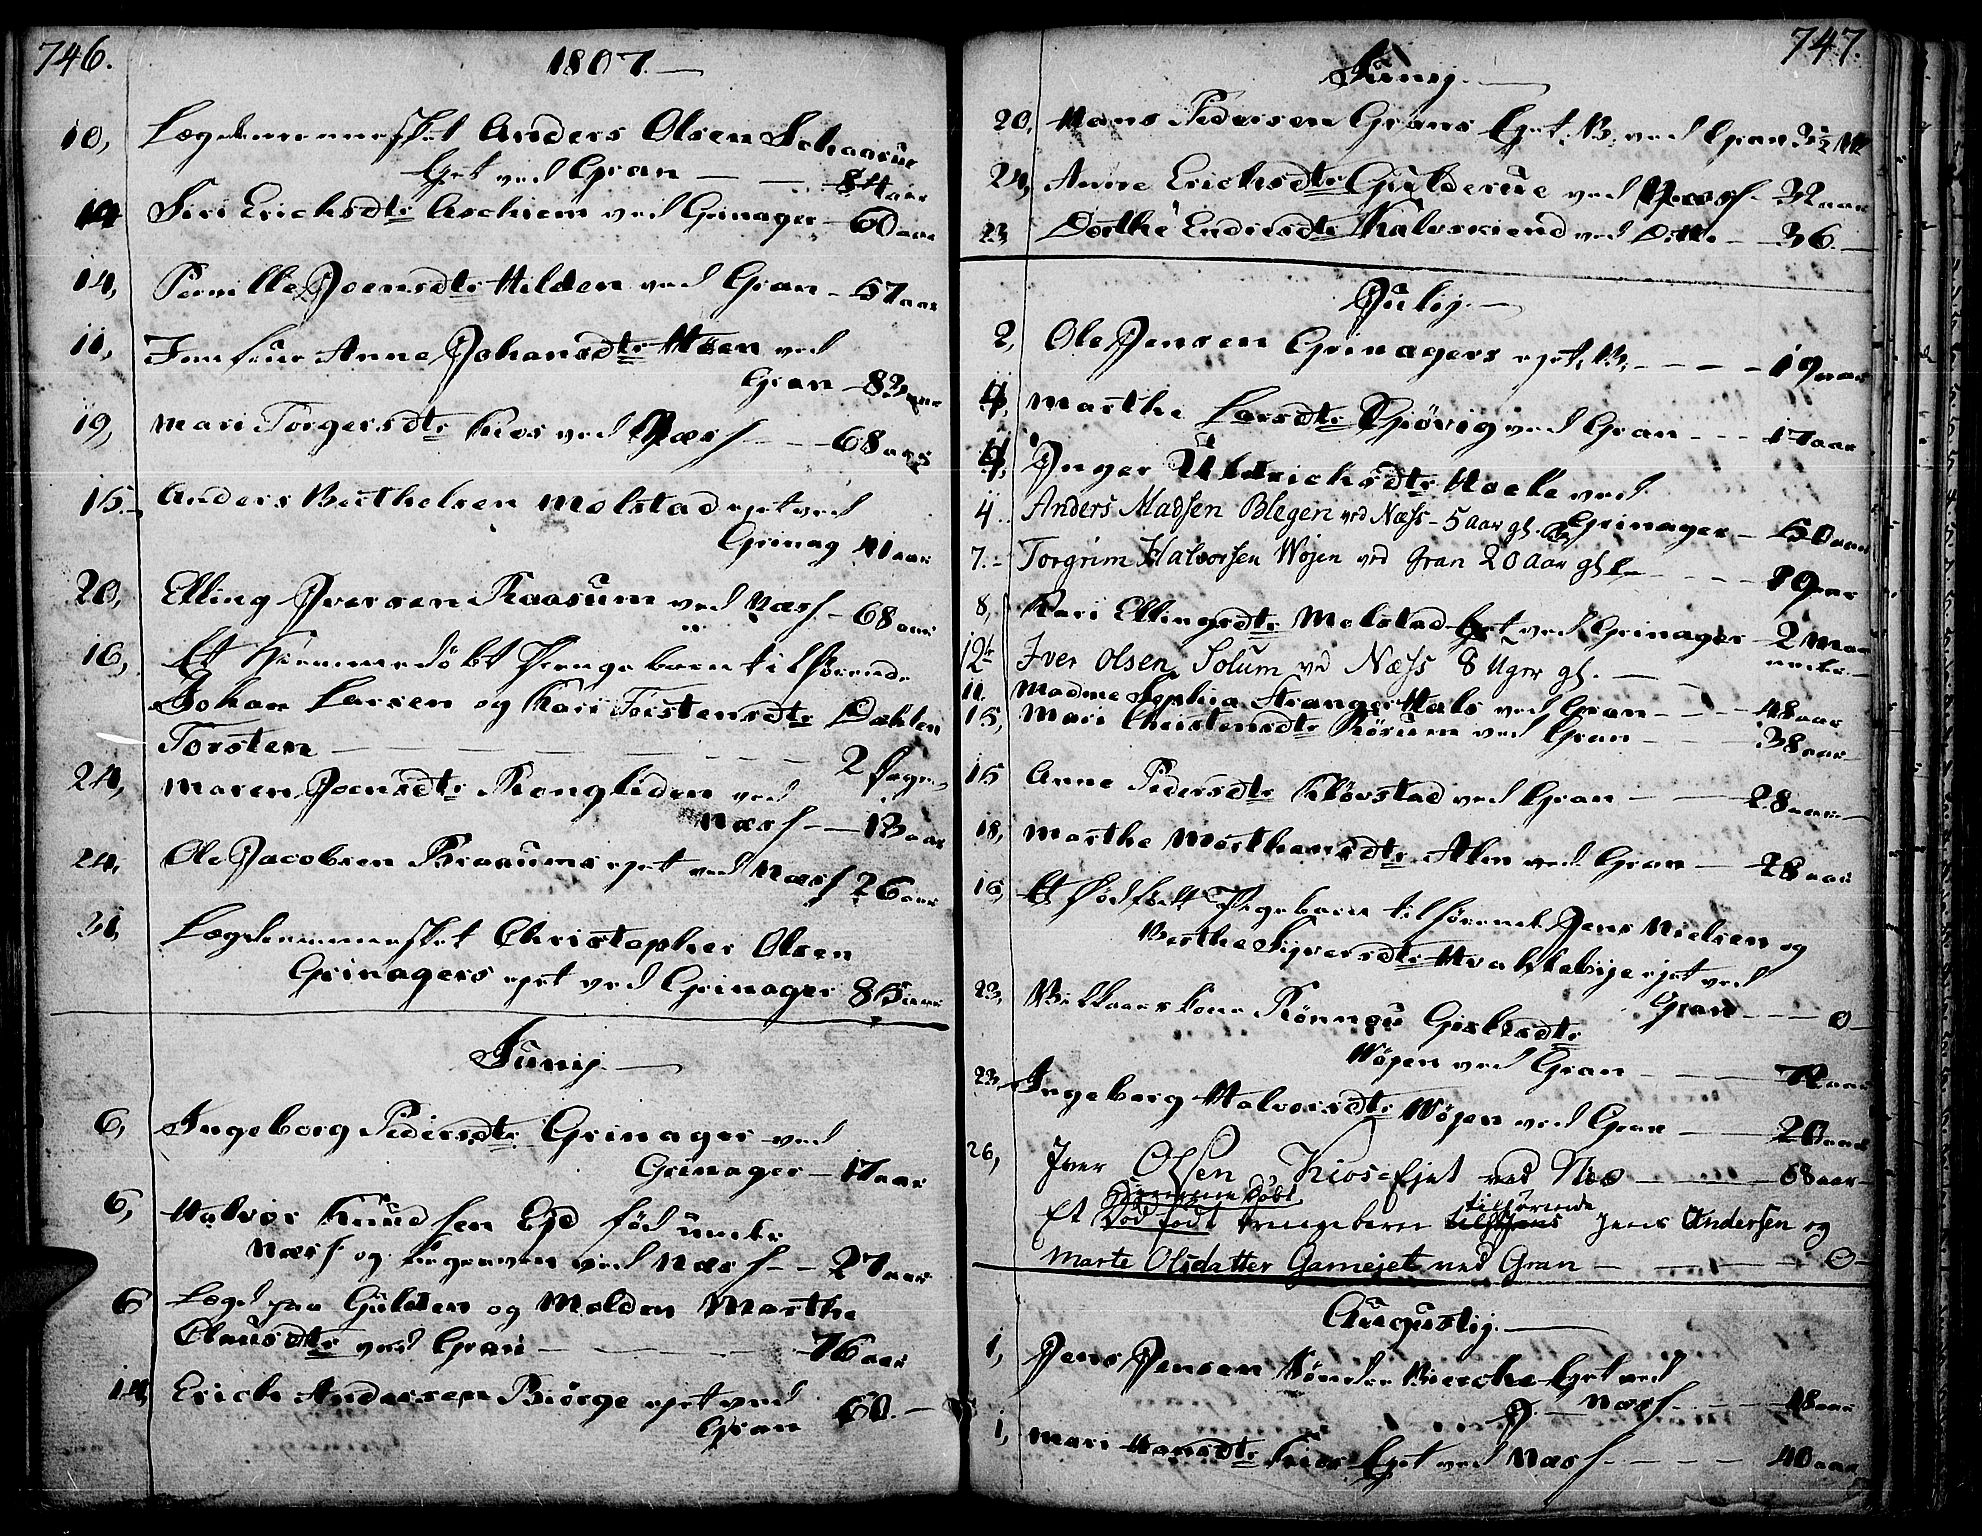 746.
1807.
10, Lægdemennesket Anders Olsen Schaarue
Eyet ved Gran — — 84 aar
14 Siri Erichsdtr Aschiem ved Grinager — 60 aar
14, Pernille Joensdtr Hilden ved Gran — 57 aar
11, Jomfrue Anne Johansdtr Hoen ved
Gran — 83 aar
19, Mari Torgersdtr Kios ved Næss — — 68 aar
15. Anders Berthelsen Molstad eyet ved
Grinag 41 aar
20, Elling Iversen Raasum ved Næss — 68 aar
16, Et Hiemmedöbt Drengebarn tilhörende
Johan Larsen og Kari Torstensdtr Dæhlen
Torsten — — — — 2 Dage
24, Maren Joensdtr Kongliden ved
Næss — 13 aar
24, Ole Jacobsen Braaums eyet ved Næss 26 aar
31, Lægdemennesket Christopher Olsen
Grinagers eyet ved Grinager 85 aar
Junij.
6, Ingeborg Pedersdtr Grinager ved
Grinager — 17 aar
6, Halvor Knudsen Eid föd
Næss og begraven ved Næss — 27 aar
6 Lægd paa Gulden og Molden Marthe
Clausdtr ved Gran — — 76 aar
14, Erich Andersen Biörge eyet ved
Gran 60. —
747.
Junij.
20, Hans Pedersen Grans Eyet. B. ved Gran 3½ M
24, Anne Erichsdtr Gulderue ved Næss — 32 aar
23 Dorthe Endresdtr Kalvskiend ved Ditto — 36. —
Julij.
2, Ole Jensen Grinagers eyet. B. — — 19 aar
4, Marthe Larsdtr Giövig ved Gran — — 17 aar
4, Inger Uldrichsdtr Hoele ved
Grinager — 50 aar
4. Anders Madsen Blegen ved Næss — 5 Aar gl.
7. — Torgrim Halvorsen Wøien ved Gran 20 Aar gl
8, Kari Ellingsdtr Molstad Eyet ved Grinager — 2 Maa
neder —
12te Iver Olsen Solum ved Næss 8 Uger gl. —
11. Madme Sophia Stranger Hals ved Gran — — 48 aar
15, Mari Christensdtr Rösum ved Gran — — 38 aar
15 Anne Pedersdtr Klövstad ved Gran — — 28 aar
18, Marthe Morthensdtr Alm ved Gran — 28 aar
16, Et Dödfödt Pigebarn tilhörende Jens Nielsen og
Berthe Siversdtr Hvattebye eyet ved
Gran — — — 0 —
23, Rönnou
Wöyen ved Gran — — 72 aar
23, Ingeborg Halvorsdtr Wöyen ved Gran — — 20 aar
26, Iver Olsen Kios Ejet ved Næs — — 68 aar —
hiemmedöbt
Et Död födt Drengebarn tilhörende Jens Andersen og
Marte Olsdatter Gamejet ved Gran — — — 0 —
Augustij.
1, Jens Jensen Sönder Bierche Eyet ved
Næss — — 18 aar
1, Mari Hansdtr Kios Eyet ved Næss — — 40 aar